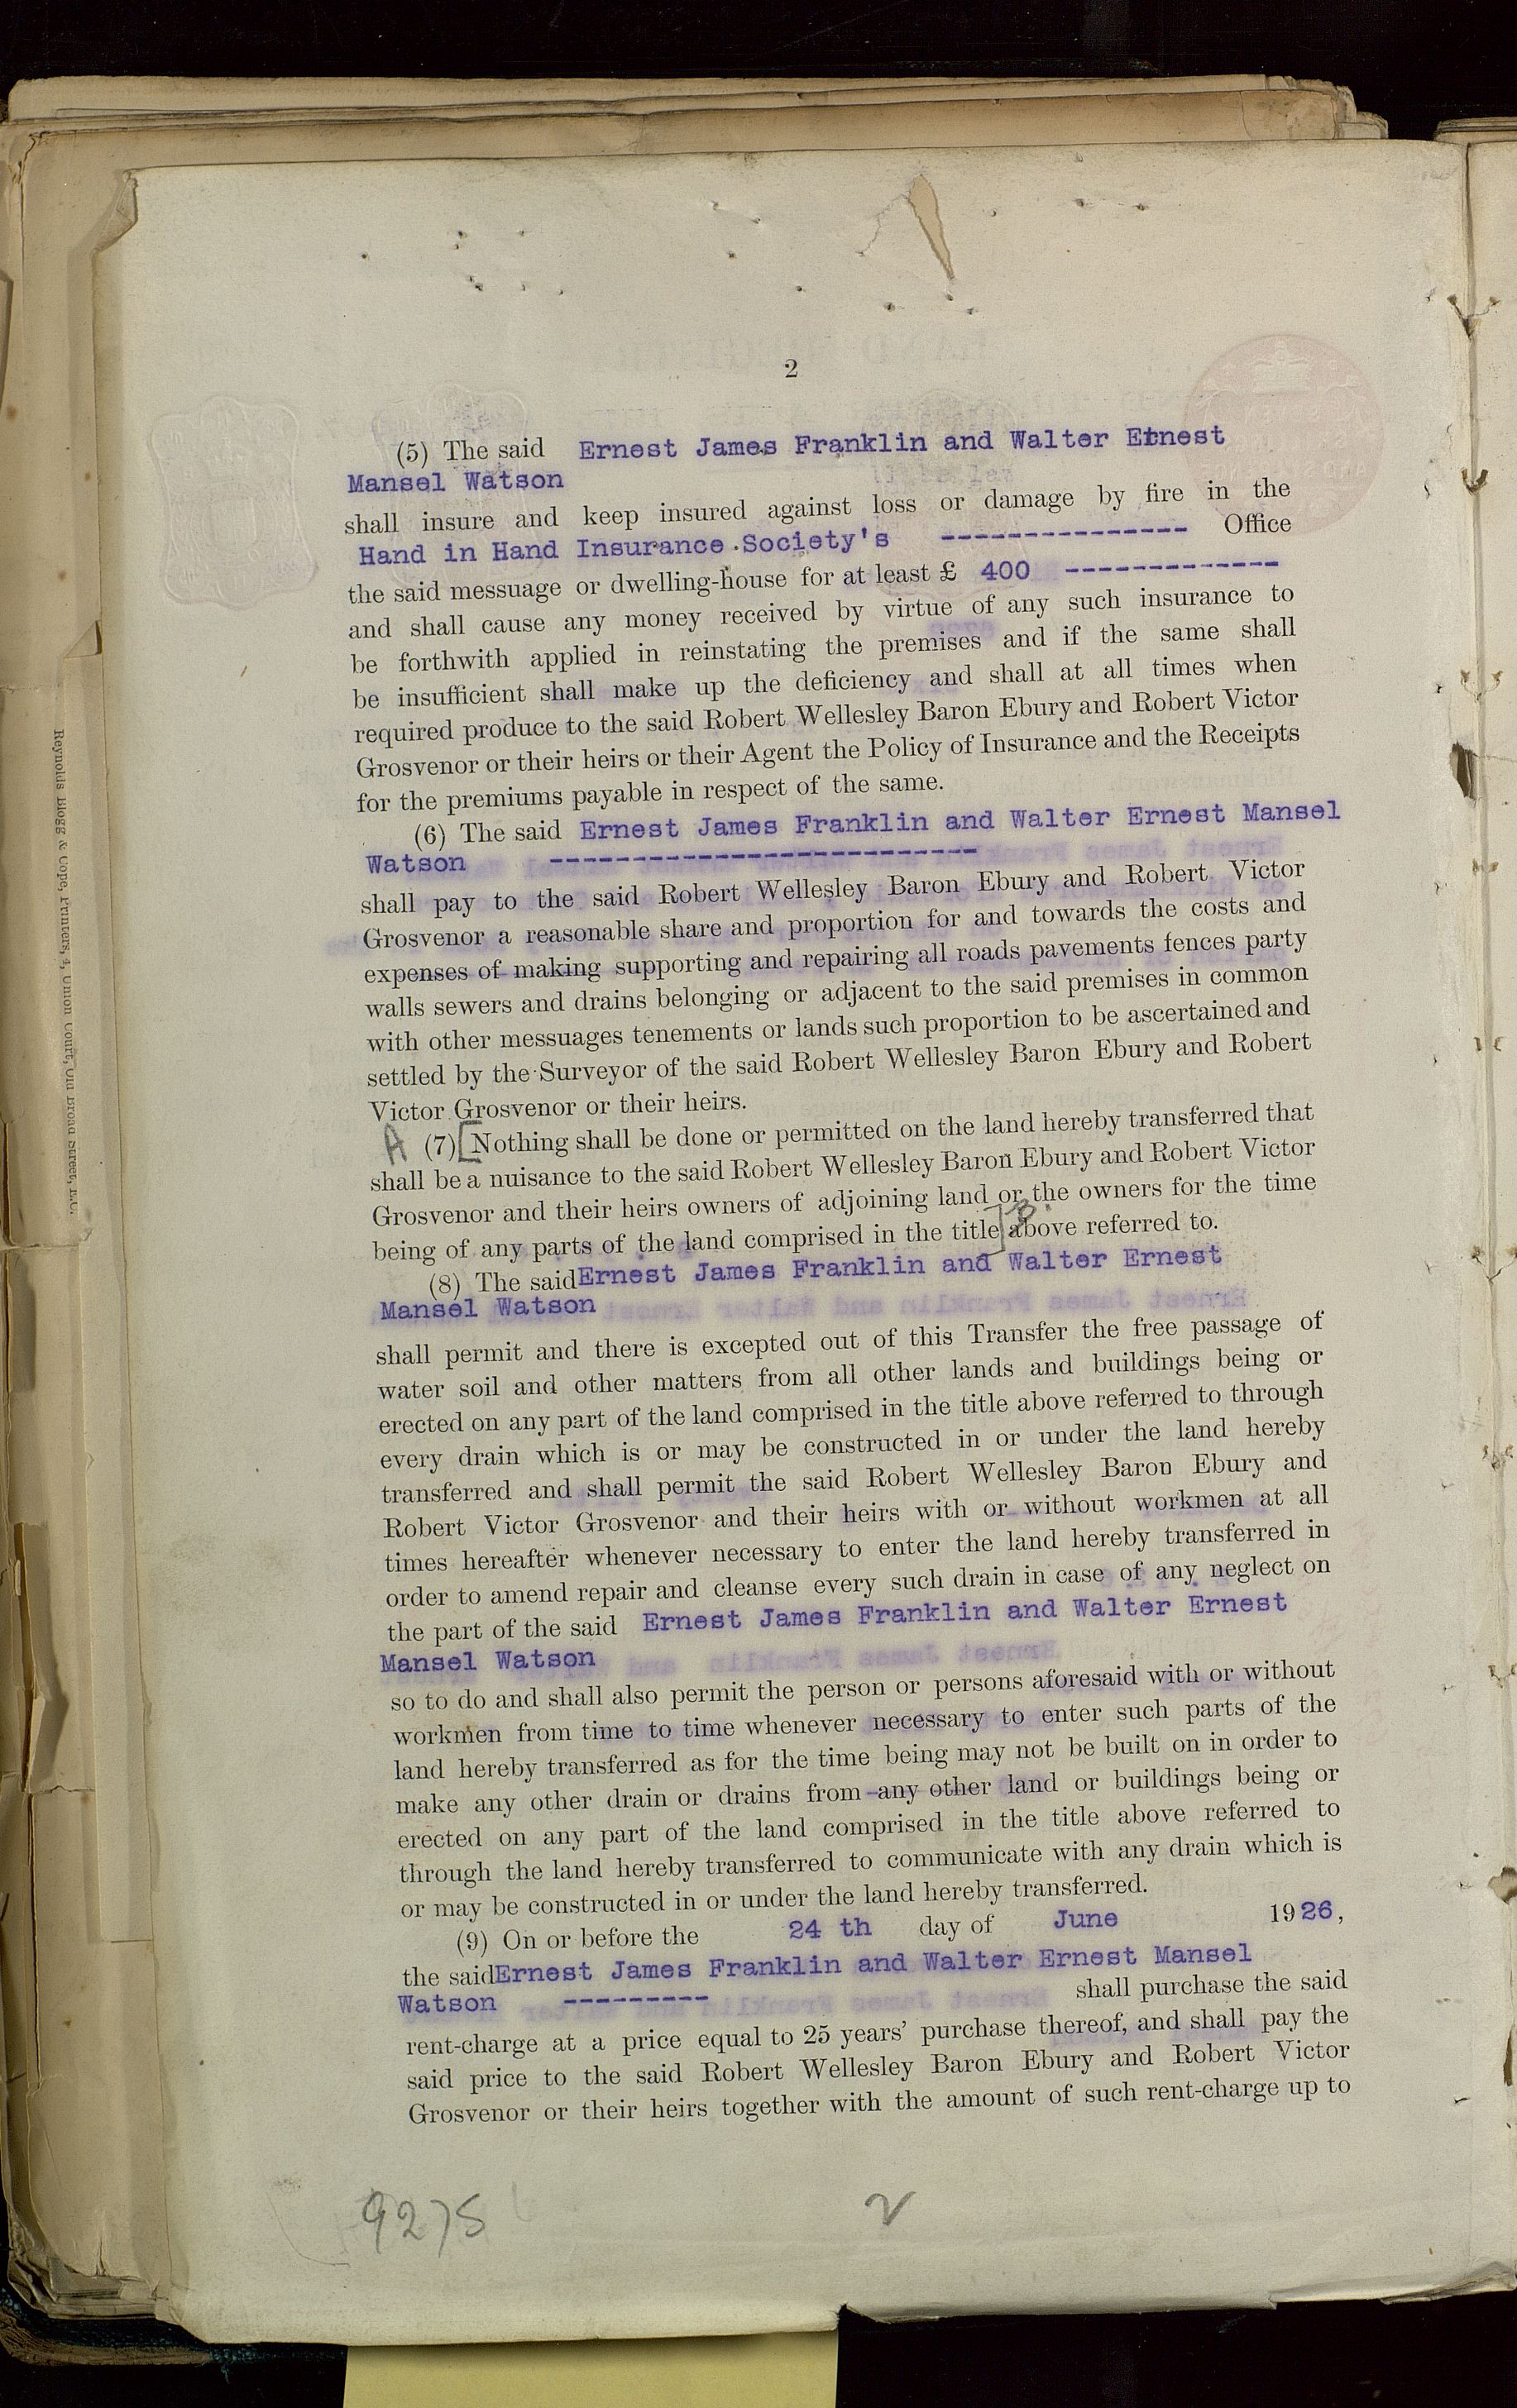 2
(5) The said Ernest James Franklin and Walter Ernest
Mansel Watson
shall insure and keep insured against loss or damage by fire in the
Hand in Hand Insurance Society's --------------- Office
the said messuage or dwelling-house for at least £ 400 -------------
and shall cause any money received by virtue of any such insurance to
be forthwith applied in reinstating the premises and if the same shall
be insufficient shall make up the deficiency and shall at all times when
required produce to the said Robert Wellesley Baron Ebury and Robert Victor
Grosvenor or their heirs or their Agent the Policy of Insurance and the Receipts
for the premiums payable in respect of the same.
(6) The said Ernest James Franklin and Walter Ernest Mansel
Watson --------------------------
shall pay to the said Robert Wellesley Baron Ebury and Robert Victor
Grosvenor a reasonable share and proportion for and towards the costs and
expenses of making supporting and repairing all roads pavements fences party
walls sewers and drains belonging or adjacent to the said premises in common
with other messuages tenements or lands such proportion to be ascertained and
settled by the Surveyor of the said Robert Wellesley Baron Ebury and Robert
Victor Grosvenor or their heirs.
A (7) [Nothing shall be done or permitted on the land hereby transferred that
shall be a nuisance to the said Robert Wellesley Baron Ebury and Robert Victor
Grosvenor and their heirs owners of adjoining land or the owners for the time
being of any parts of the land comprised in the title] B above referred to.
(8) The said Ernest James Franklin and Walter Ernest
Mansel Watson
shall permit and there is excepted out of this Transfer the free passage of
water soil and other matters from all other lands and buildings being or
erected on any part of the land comprised in the title above referred to through
every drain which is or may be constructed in or under the land hereby
transferred and shall permit the said Robert Wellesley Baron Ebury and
Robert Victor Grosvenor and their heirs with or without workmen at all
times hereafter whenever necessary to enter the land hereby transferred in
order to amend repair and cleanse every such drain in case of any neglect on
the part of the said Ernest James Franklin and Walter Ernest
Mansel Watson
so to do and shall also permit the person or persons aforesaid with or without
workmen from time to time whenever necessary to enter such parts of the
land hereby transferred as for the time being may not be built on in order to
make any other drain or drains from any other land or buildings being or
erected on any part of the land comprised in the title above referred to
through the land hereby transferred to communicate with any drain which is
or may be constructed in or under the land hereby transferred.
(9) On or before the 24 th day of June 1926,
the said Ernest James Franklin and Walter Ernest Mansel
Watson --------- shall purchase the said
rent-charge at a price equal to 25 years' purchase thereof, and shall pay the
said price to the said Robert Wellesley Baron Ebury and Robert Victor
Grosvenor or their heirs together with the amount of such rent-charge up to
9275
2
Reynolds Blogg & Cope, Printers, 4, Union Court, Old Broad Street, E.C.